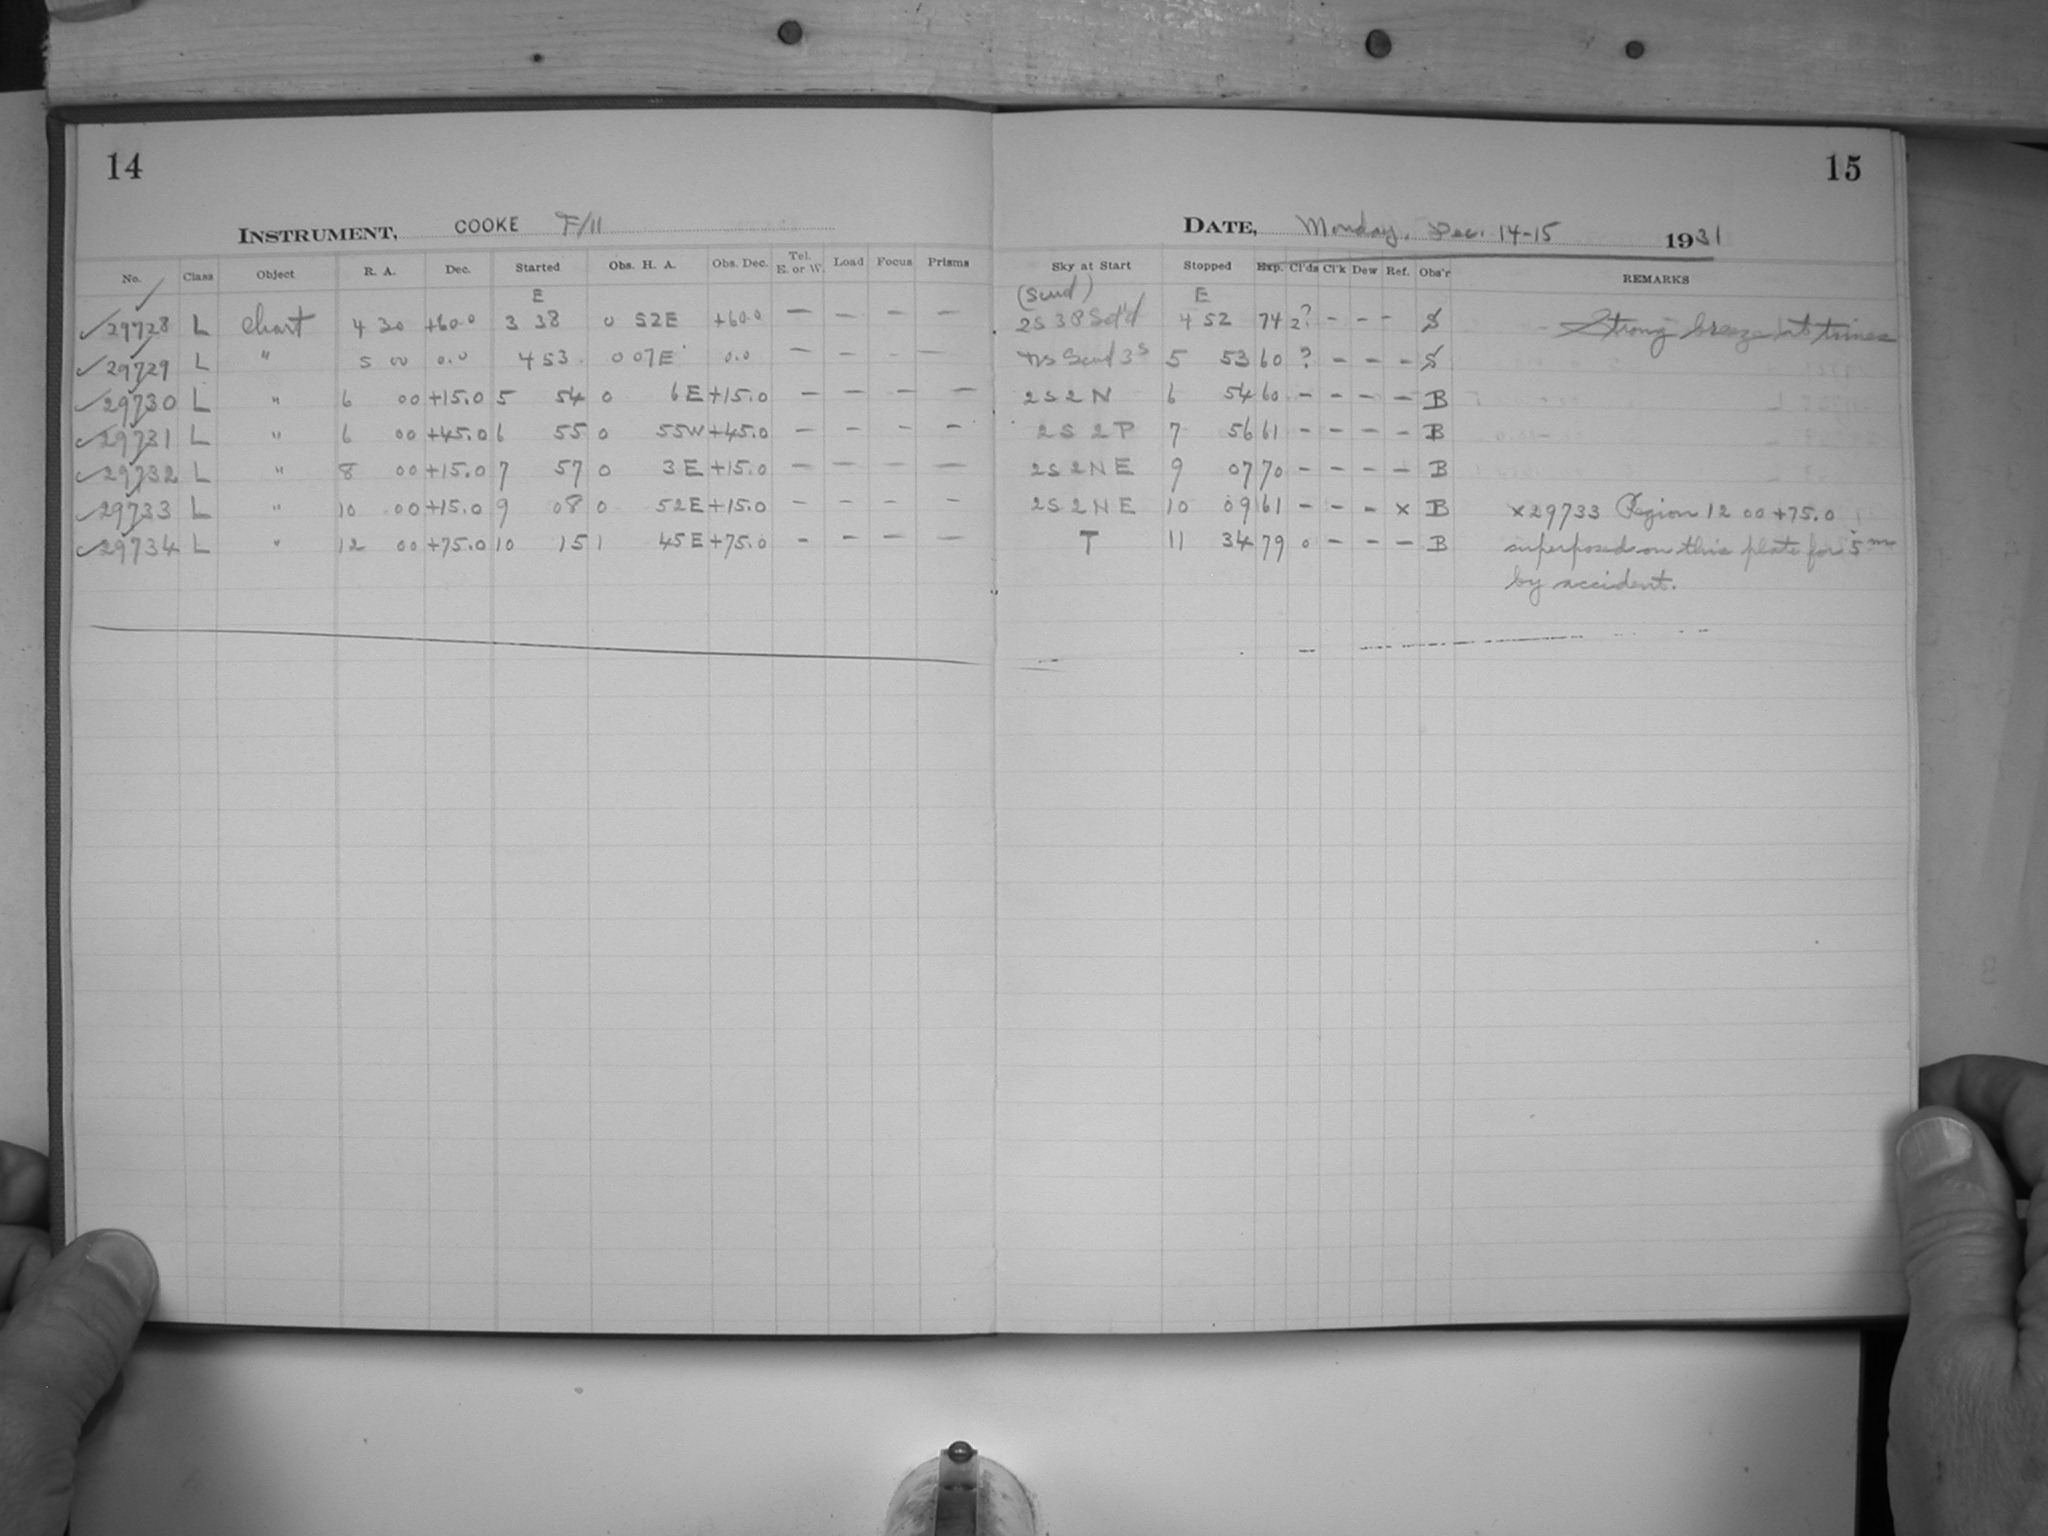 14
15
INSTRUMENT, COOKE F/11
DATE, Monday, Dec. 14-15 1931
No. Class Object R. A. Dec. Started Obs. H. A. Obs. Dec. Tel. E. or W. Load Focus Prisms Sky at Start Stopped Exp. Cl'ds Cl'k Dew Ref. Obs'r REMARKS
E (Scud) E
29728 L Chart 4 30 +60.0 3 38 0 52E +60.0 — — — — 2S 3P 4 52 74 2? - - - S Strong breeze at times
29729 L " 5 00 0.0 4 53 0 07E 0.0 — — - — Scud 3S 5 53 60 ? - - - S
29730 L " 6 00 +15.0 5 54 0 6E +15.0 — — - — 2S 2N 6 54 60 - - - - B
29731 L " 6 00 +45.0 6 55 0 55W +45.0 — — - - 2S 2P 7 56 61 - - - - B
29732 L " 8 00 +15.0 7 57 0 3E +15.0 — — — — 2S 2NE 9 07 70 - - - - B
29733 L " 10 00 +15.0 9 08 0 52E +15.0 - — - - 2S 2NE 10 09 61 - - - x B x29733 Region 12 00 +75.0
29734 L " 12 00 +75.0 10 15 1 45E +75.0 - - — — T 11 34 79 0 - - - B superposed on this plate for 5m
by accident.